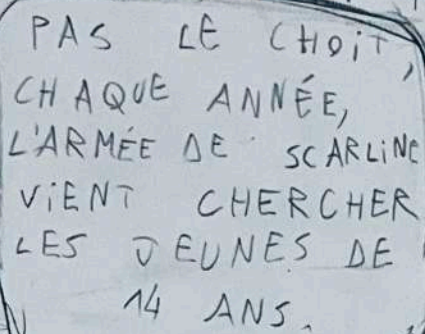 PAS LE CHOIT,
CHAQUE ANNÉE,
L'ARMÉE DE SCARLINE
VIENT CHERCHER
LES JEUNES DE
14 ANS.